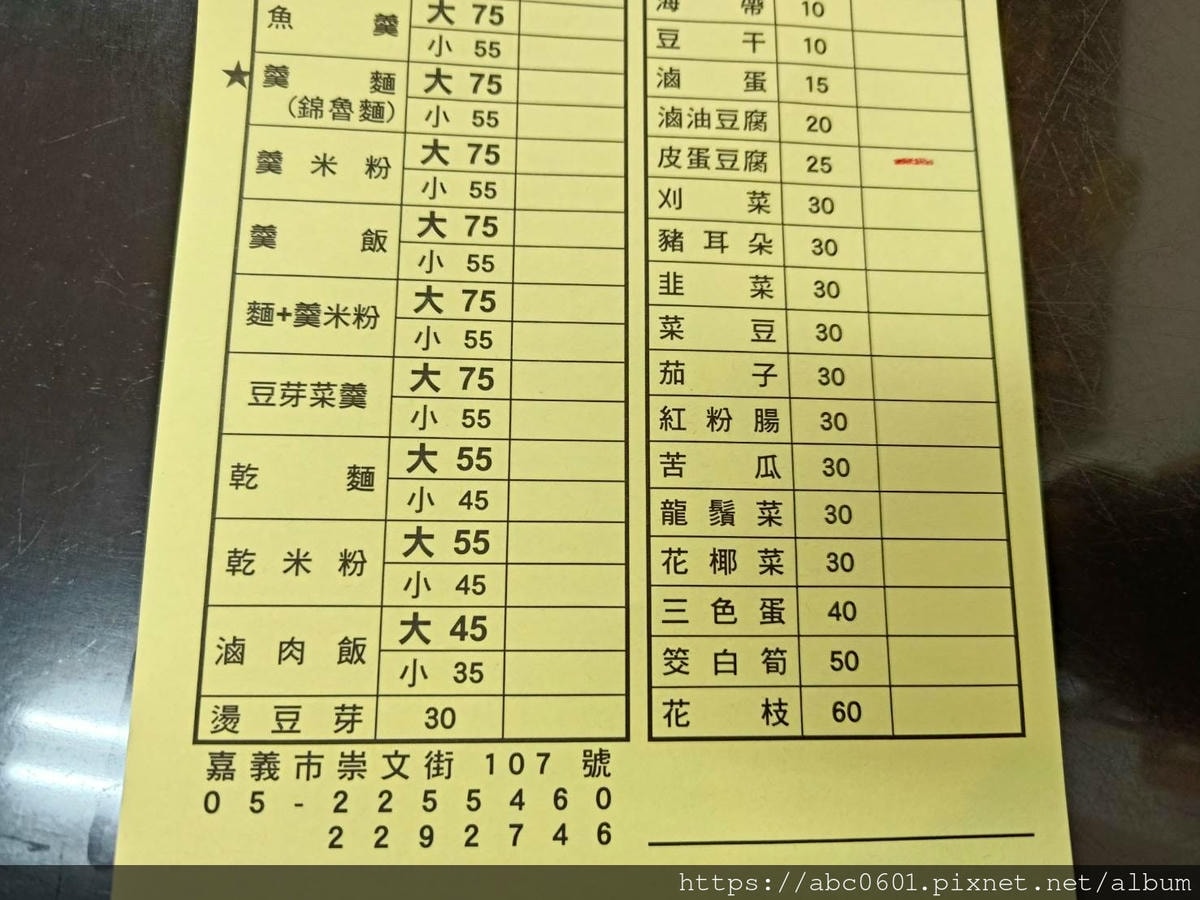 魚羹 大 75
小 55
★ 羹麵 大 75
(錦魯麵) 小 55
羹米粉 大 75
小 55
羹飯 大 75
小 55
麵+羹米粉 大 75
小 55
豆芽菜羹 大 75
小 55
乾麵 大 55
小 45
乾米粉 大 55
小 45
滷肉飯 大 45
小 35
燙豆芽 30
嘉義市崇文街 107 號
05-2255460
2292746
海帶 10
豆干 10
滷蛋 15
滷油豆腐 20
皮蛋豆腐 25
刈菜 30
豬耳朵 30
韭菜 30
菜豆 30
茄子 30
紅粉腸 30
苦瓜 30
龍鬚菜 30
花椰菜 30
三色蛋 40
筊白筍 50
花枝 60
https://abc0601.pixnet.net/album